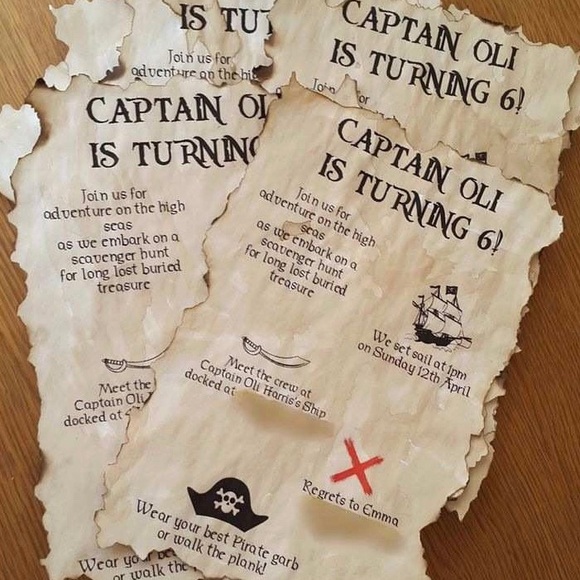 IS TU
Join us for
adventure on the hi
CAPTAIN OLI
IS TURNING 6!
CAPTAIN OL
IS TURNING
Join us for
adventure on the high
seas
as we embark on a
scavenger hunt
for long lost buried
treasure
Meet the
Captain Oli
docked at
Wear your be
or walk the
CAPTAIN OLI
IS TURNING 6!
Join us for
adventure on the high
seas
as we embark on a
scavenger hunt
for long lost buried
treasure
We set sail at 1pm
on Sunday 12th April
Meet the crew at
Captain Oli Harris's Ship
docked at
Regrets to Emma
Wear your best Pirate garb
or walk the plank!